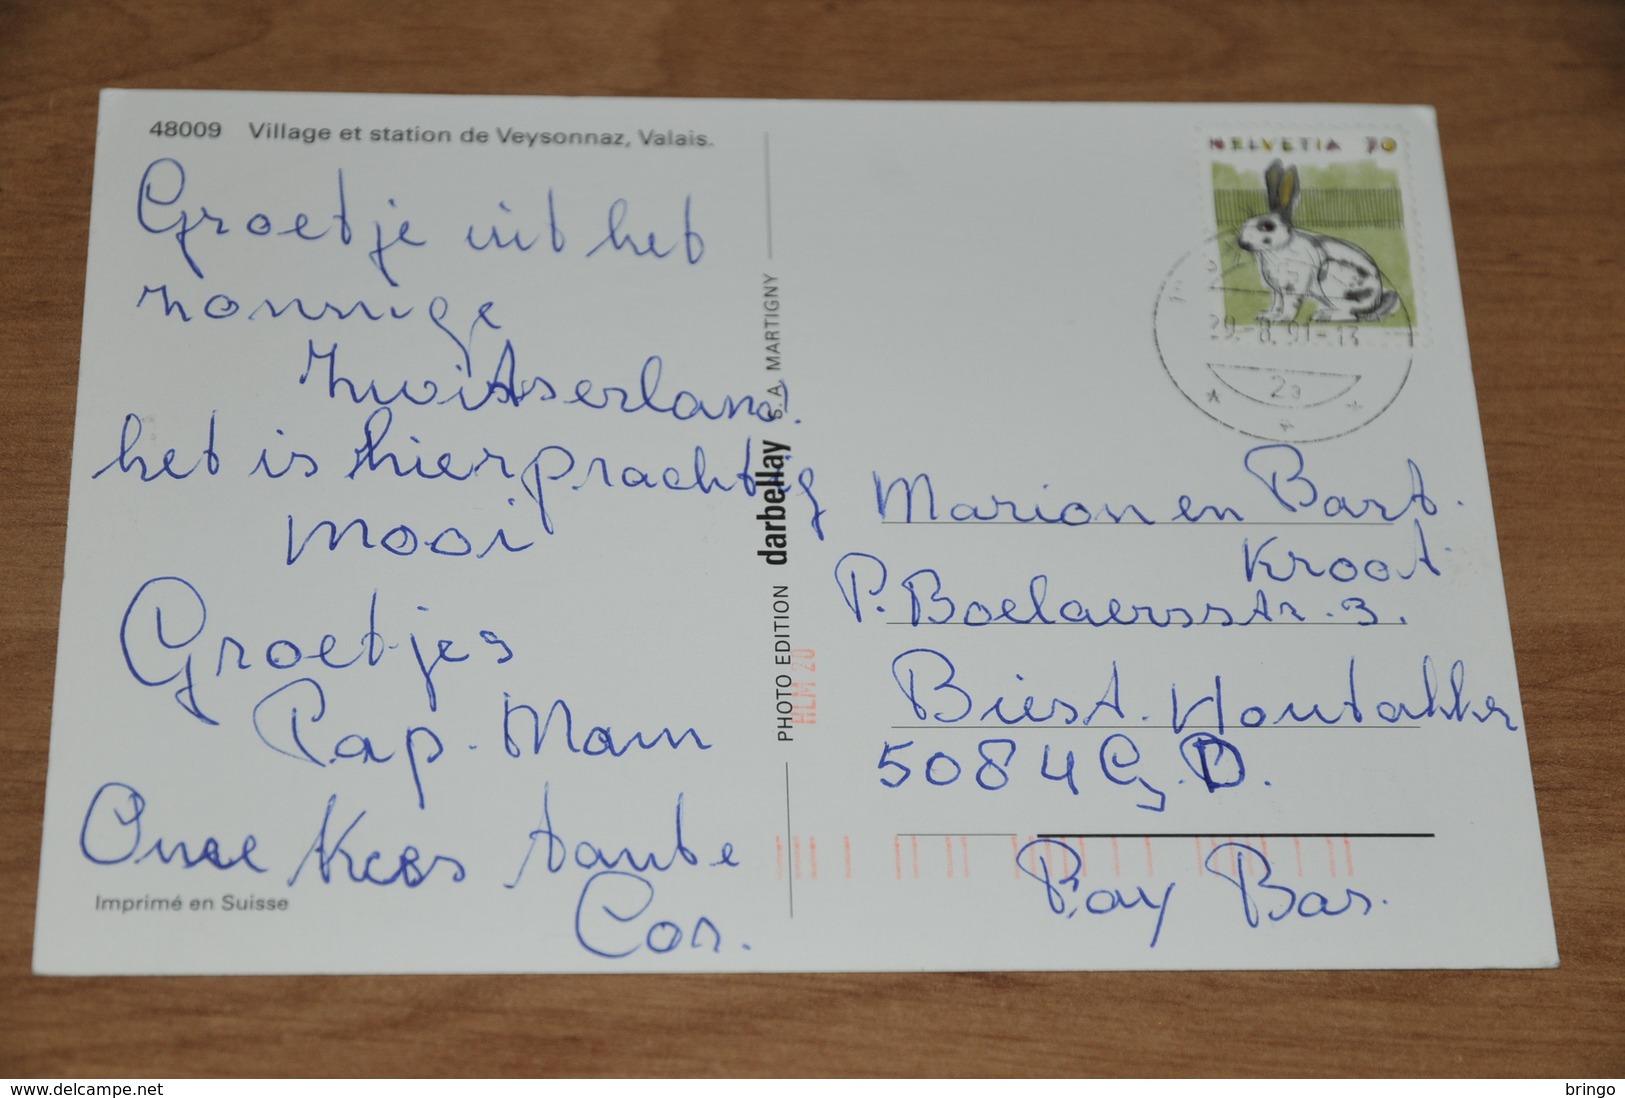 48009 Village et station de Veysonnaz, Valais.
Groetje uit het
zonnige
Zwitserland.
het is hier prachtig
mooi
Groetjes
Pap. Mam
Kees tante
Cor.
Imprimé en Suisse
PHOTO EDITION darbellay S. A. MARTIGNY
HELVETIA 70
29.-8.91-13
2a
Marion en Bart.
Kroot
P. Boelaersstr. 3.
Biest. Houtakker
5084 G.D.
Bay Bas.
www.delcampe.net
bringo